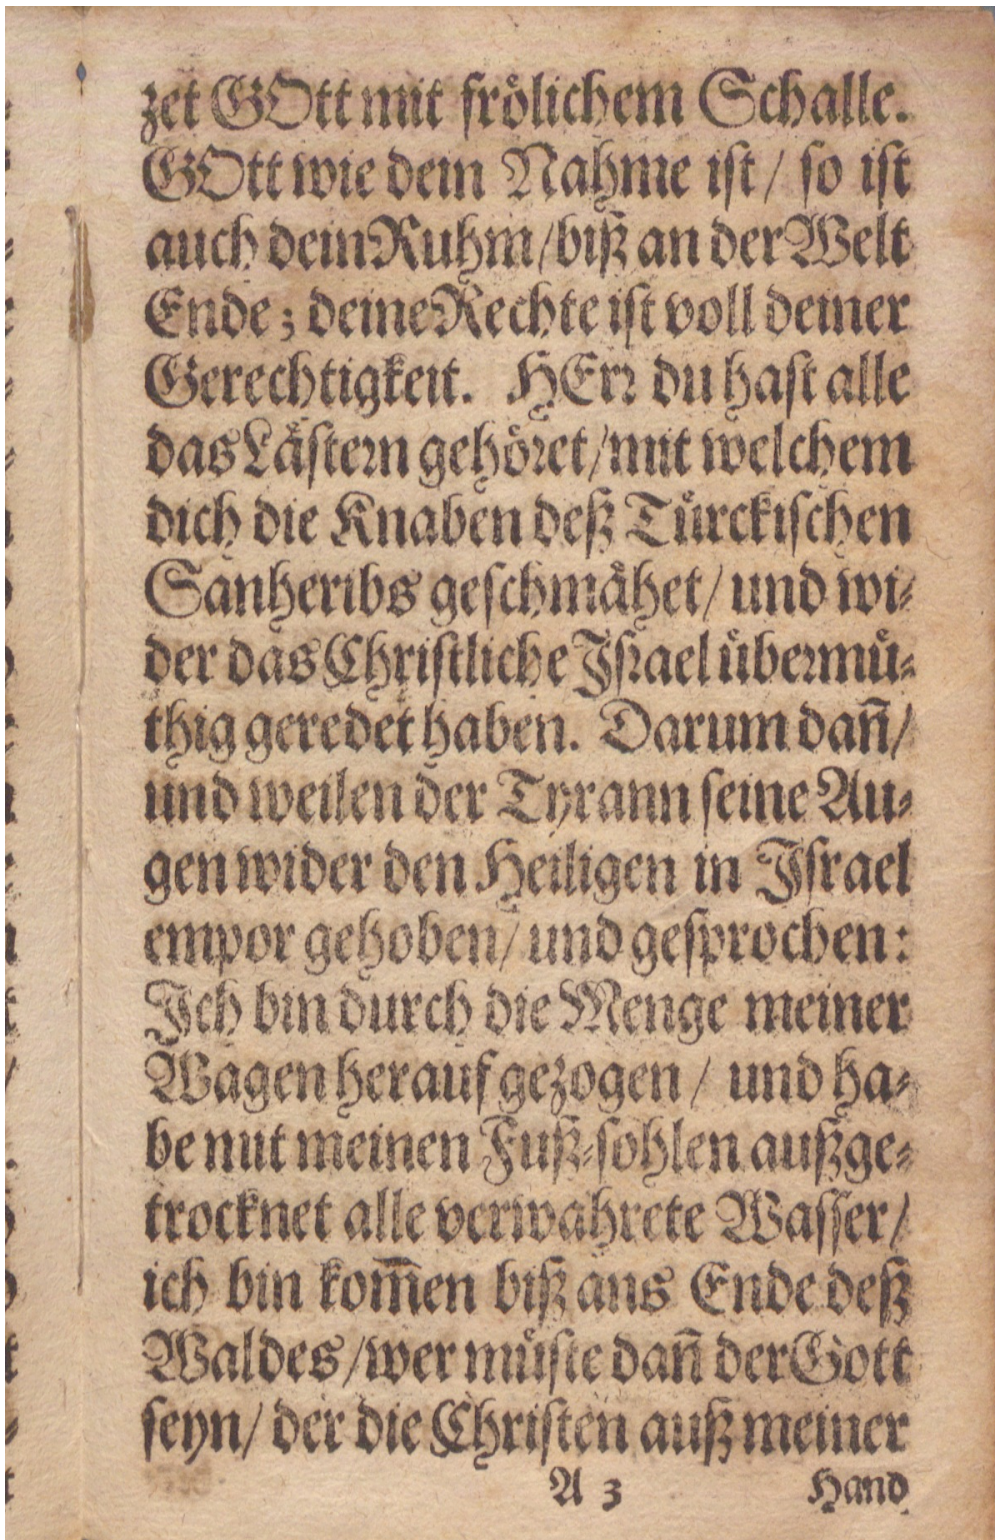 zet GOtt mit frölichem Schalle.
GOtt wie dein Nahme ist / so ist
auch dein Ruhm / biß an der Welt
Ende; deine Rechte ist voll deiner
Gerechtigkeit. HErr du hast alle
das Lästern gehöret / mit welchem
dich die Knaben deß Türckischen
Sanheribs geschmähet / und wi-
der das Christliche Israel übermü-
thig geredet haben. Darum dañ /
und weilen der Tyrann seine Au-
gen wider den Heiligen in Israel
empor gehoben / und gesprochen:
Ich bin durch die Menge meiner
Wagen herauf gezogen / und ha-
be mit meinen Fuß-sohlen außge-
trocknet alle verwahrete Wasser /
ich bin kom̃en biß ans Ende deß
Waldes / wer müste dañ der Gott
seyn / der die Christen auß meiner
A 3 Hand